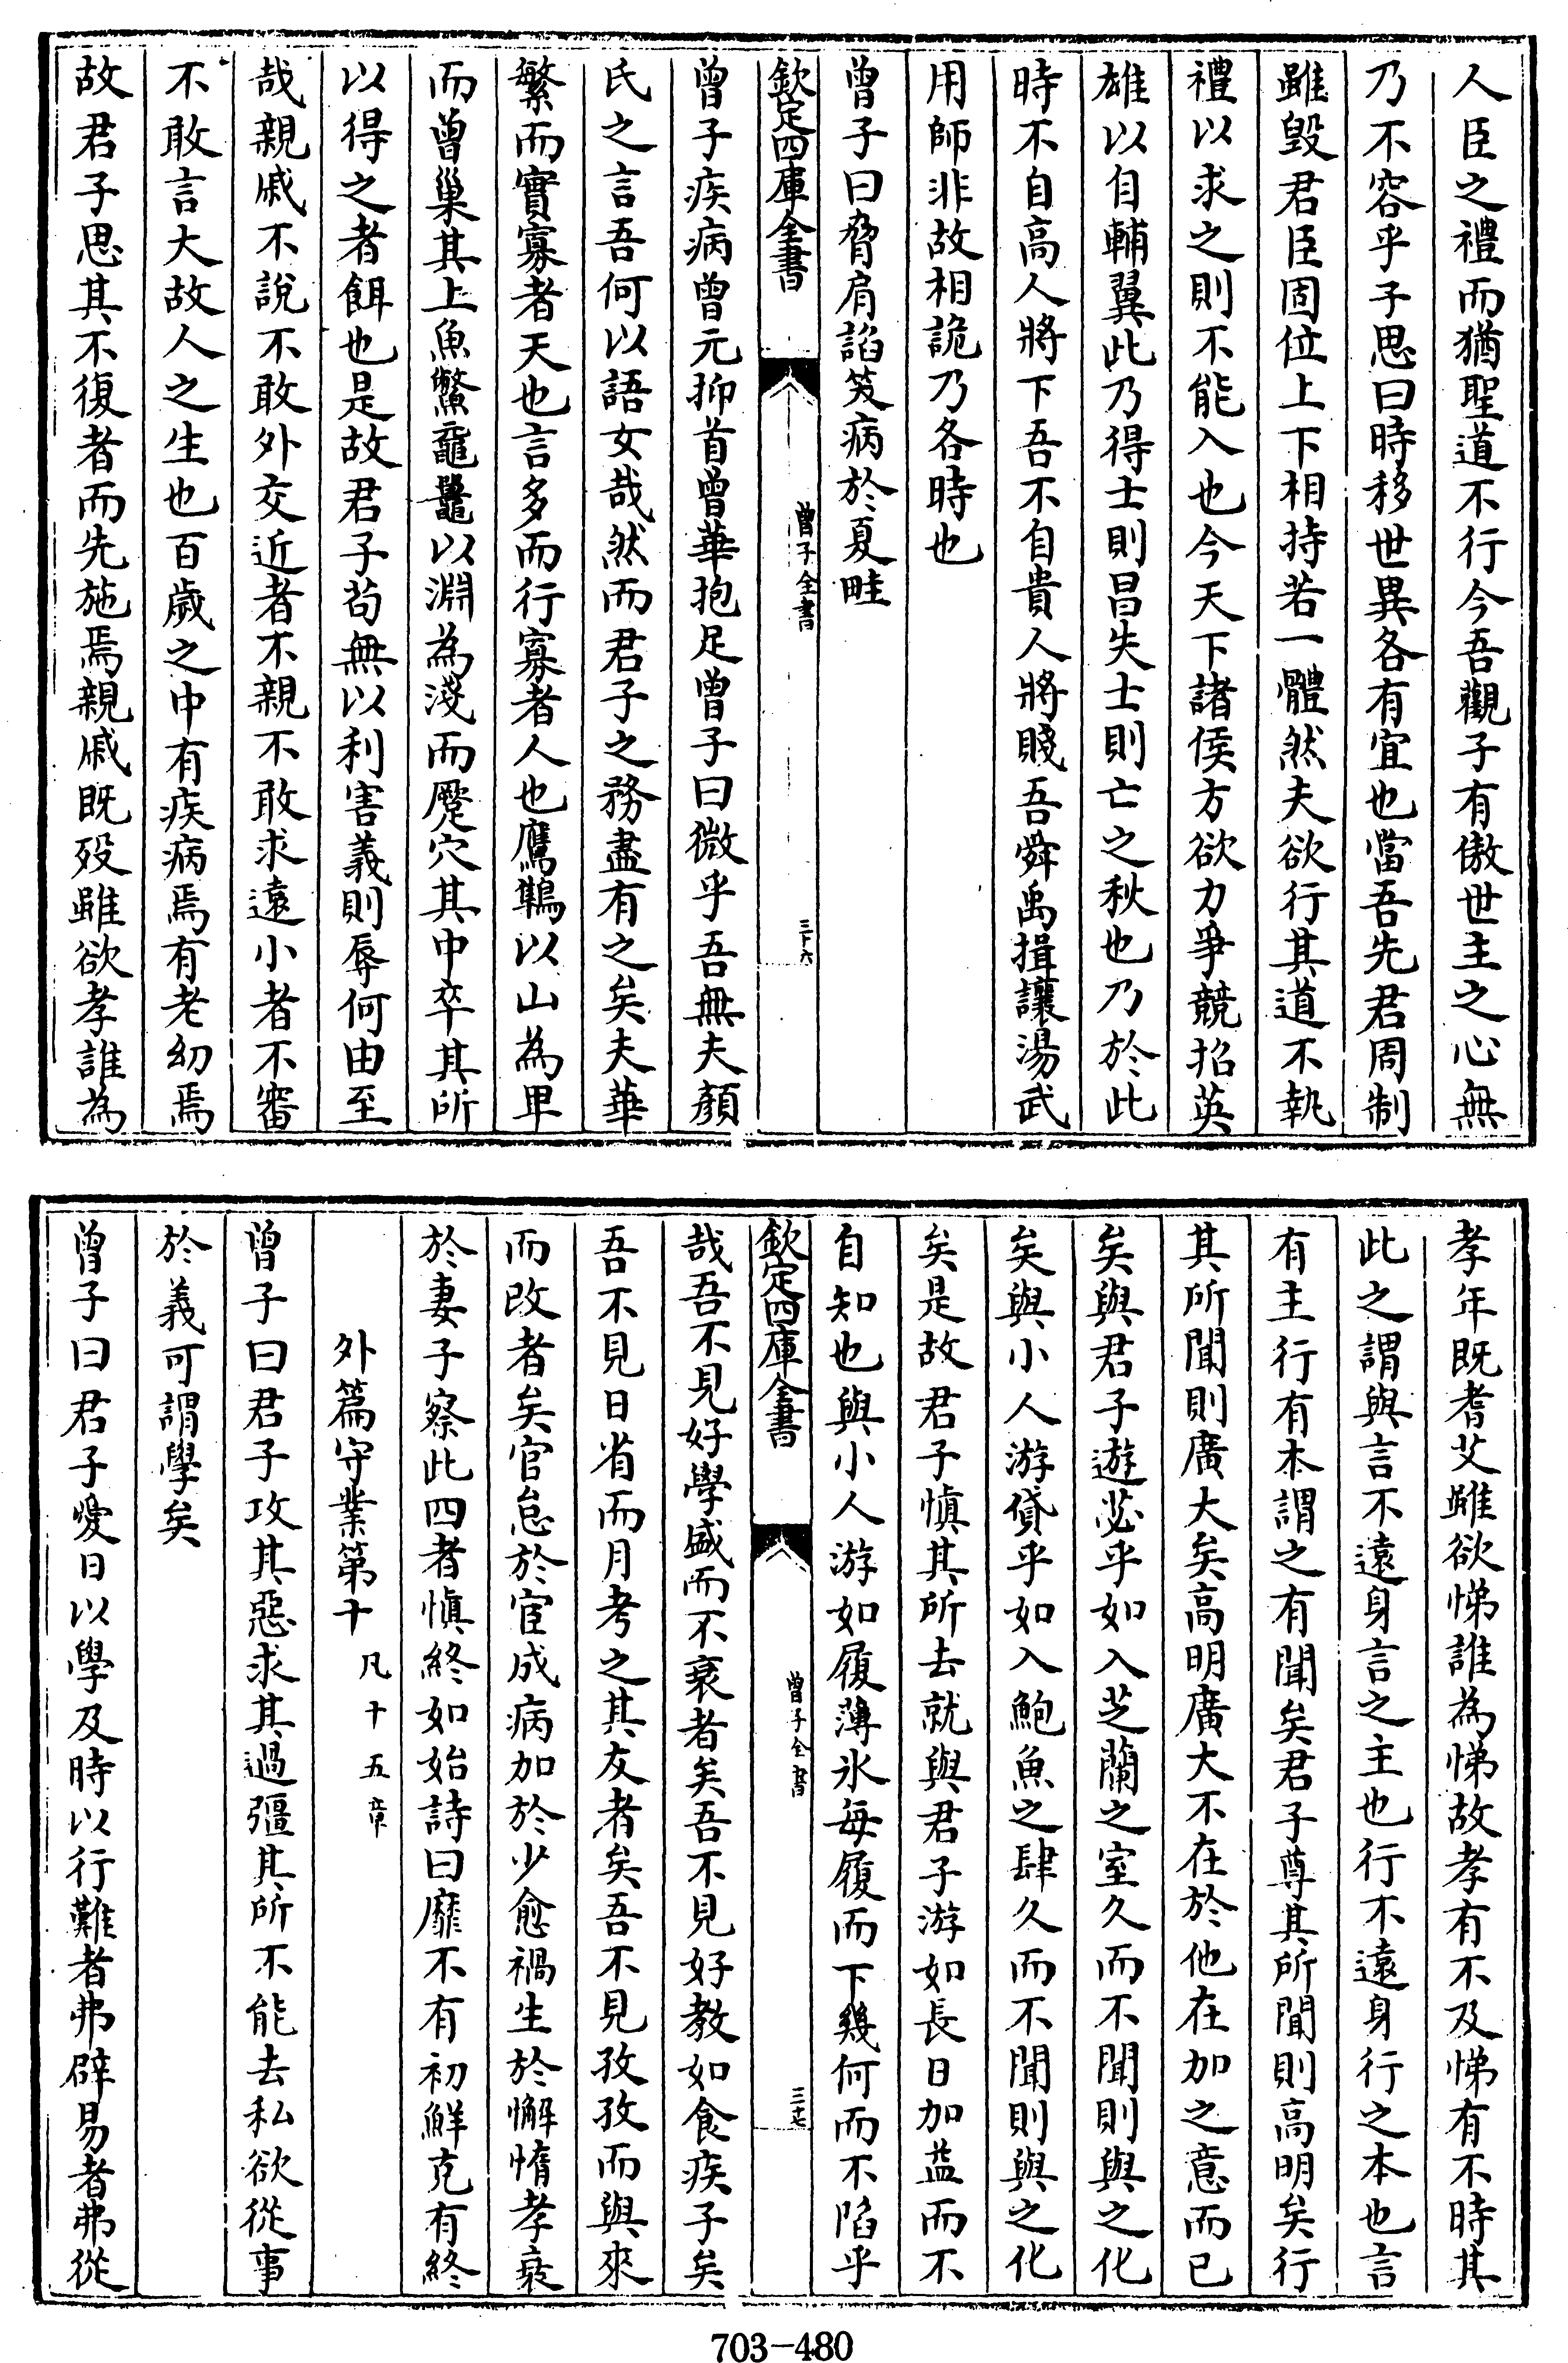 人臣之禮而猶聖道不行今吾觀子有傲世主之心無
乃不容乎子思曰時移世異各有宜也當吾先君周制
雖毀君臣固位上下相持若一體然夫欲行其道不執
禮以求之則不能入也今天下諸侯方欲力爭競招英
雄以自輔翼此乃得士則昌失士則亡之秋也乃於此
時不自高人將下吾不自貴人將賤吾舜禹揖讓湯武
用師非故相詭乃各時也
曾子曰脅肩諂笑病於夏畦
欽定四庫全書
曾子全書
三十六
曾子疾病曾元抑首曾華抱足曾子曰微乎吾無夫顏
氏之言吾何以語女哉然而君子之務盡有之矣夫華
繁而實寡者天也言多而行寡者人也鷹鶽以山為卑
而曾巢其上魚鱉黿鼉以淵為淺而蹷穴其中卒其所
以得之者餌也是故君子苟無以利害義則辱何由至
哉親戚不說不敢外交近者不親不敢求遠小者不審
不敢言大故人之生也百歲之中有疾病焉有老幼焉
故君子思其不復者而先施焉親戚既歿雖欲孝誰為
孝年既耆艾雖欲悌誰為悌故孝有不及悌有不時其
此之謂與言不遠身言之主也行不遠身行之本也言
有主行有本謂之有聞矣君子尊其所聞則高明矣行
其所聞則廣大矣高明廣大不在於他在加之意而已
矣與君子遊苾乎如入芝蘭之室久而不聞則與之化
矣與小人游貸乎如入鮑魚之肆久而不聞則與之化
矣是故君子慎其所去就與君子游如長日加益而不
自知也與小人游如履薄氷每履而下幾何而不陷乎
欽定四庫全書
曾子全書
三十七
哉吾不見好學盛而不衰者矣吾不見好教如食疾子矣
吾不見日省而月考之其友者矣吾不見孜孜而與來
而改者矣官怠於宦成病加於少愈禍生於懈惰孝衰
於妻子察此四者慎終如始詩曰靡不有初鮮克有終
外篇守業第十 凡十五章
曾子曰君子攻其惡求其過彊其所不能去私欲從事
於義可謂學矣
曾子曰君子愛日以學及時以行難者弗辟易者弗從
703-480